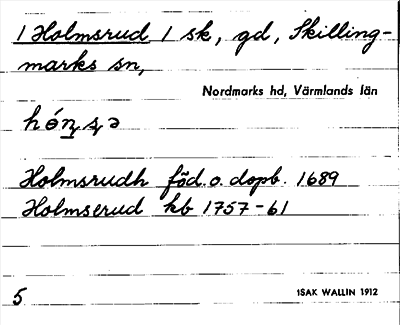 1 Holmsrud 1 sk, gd, Skilling-
marks sn,
Nordmarks hd, Värmlands län
Holmsrudh föd. o. dopb. 1689
Holmserud kb 1757-61
5
ISAK WALLIN 1912